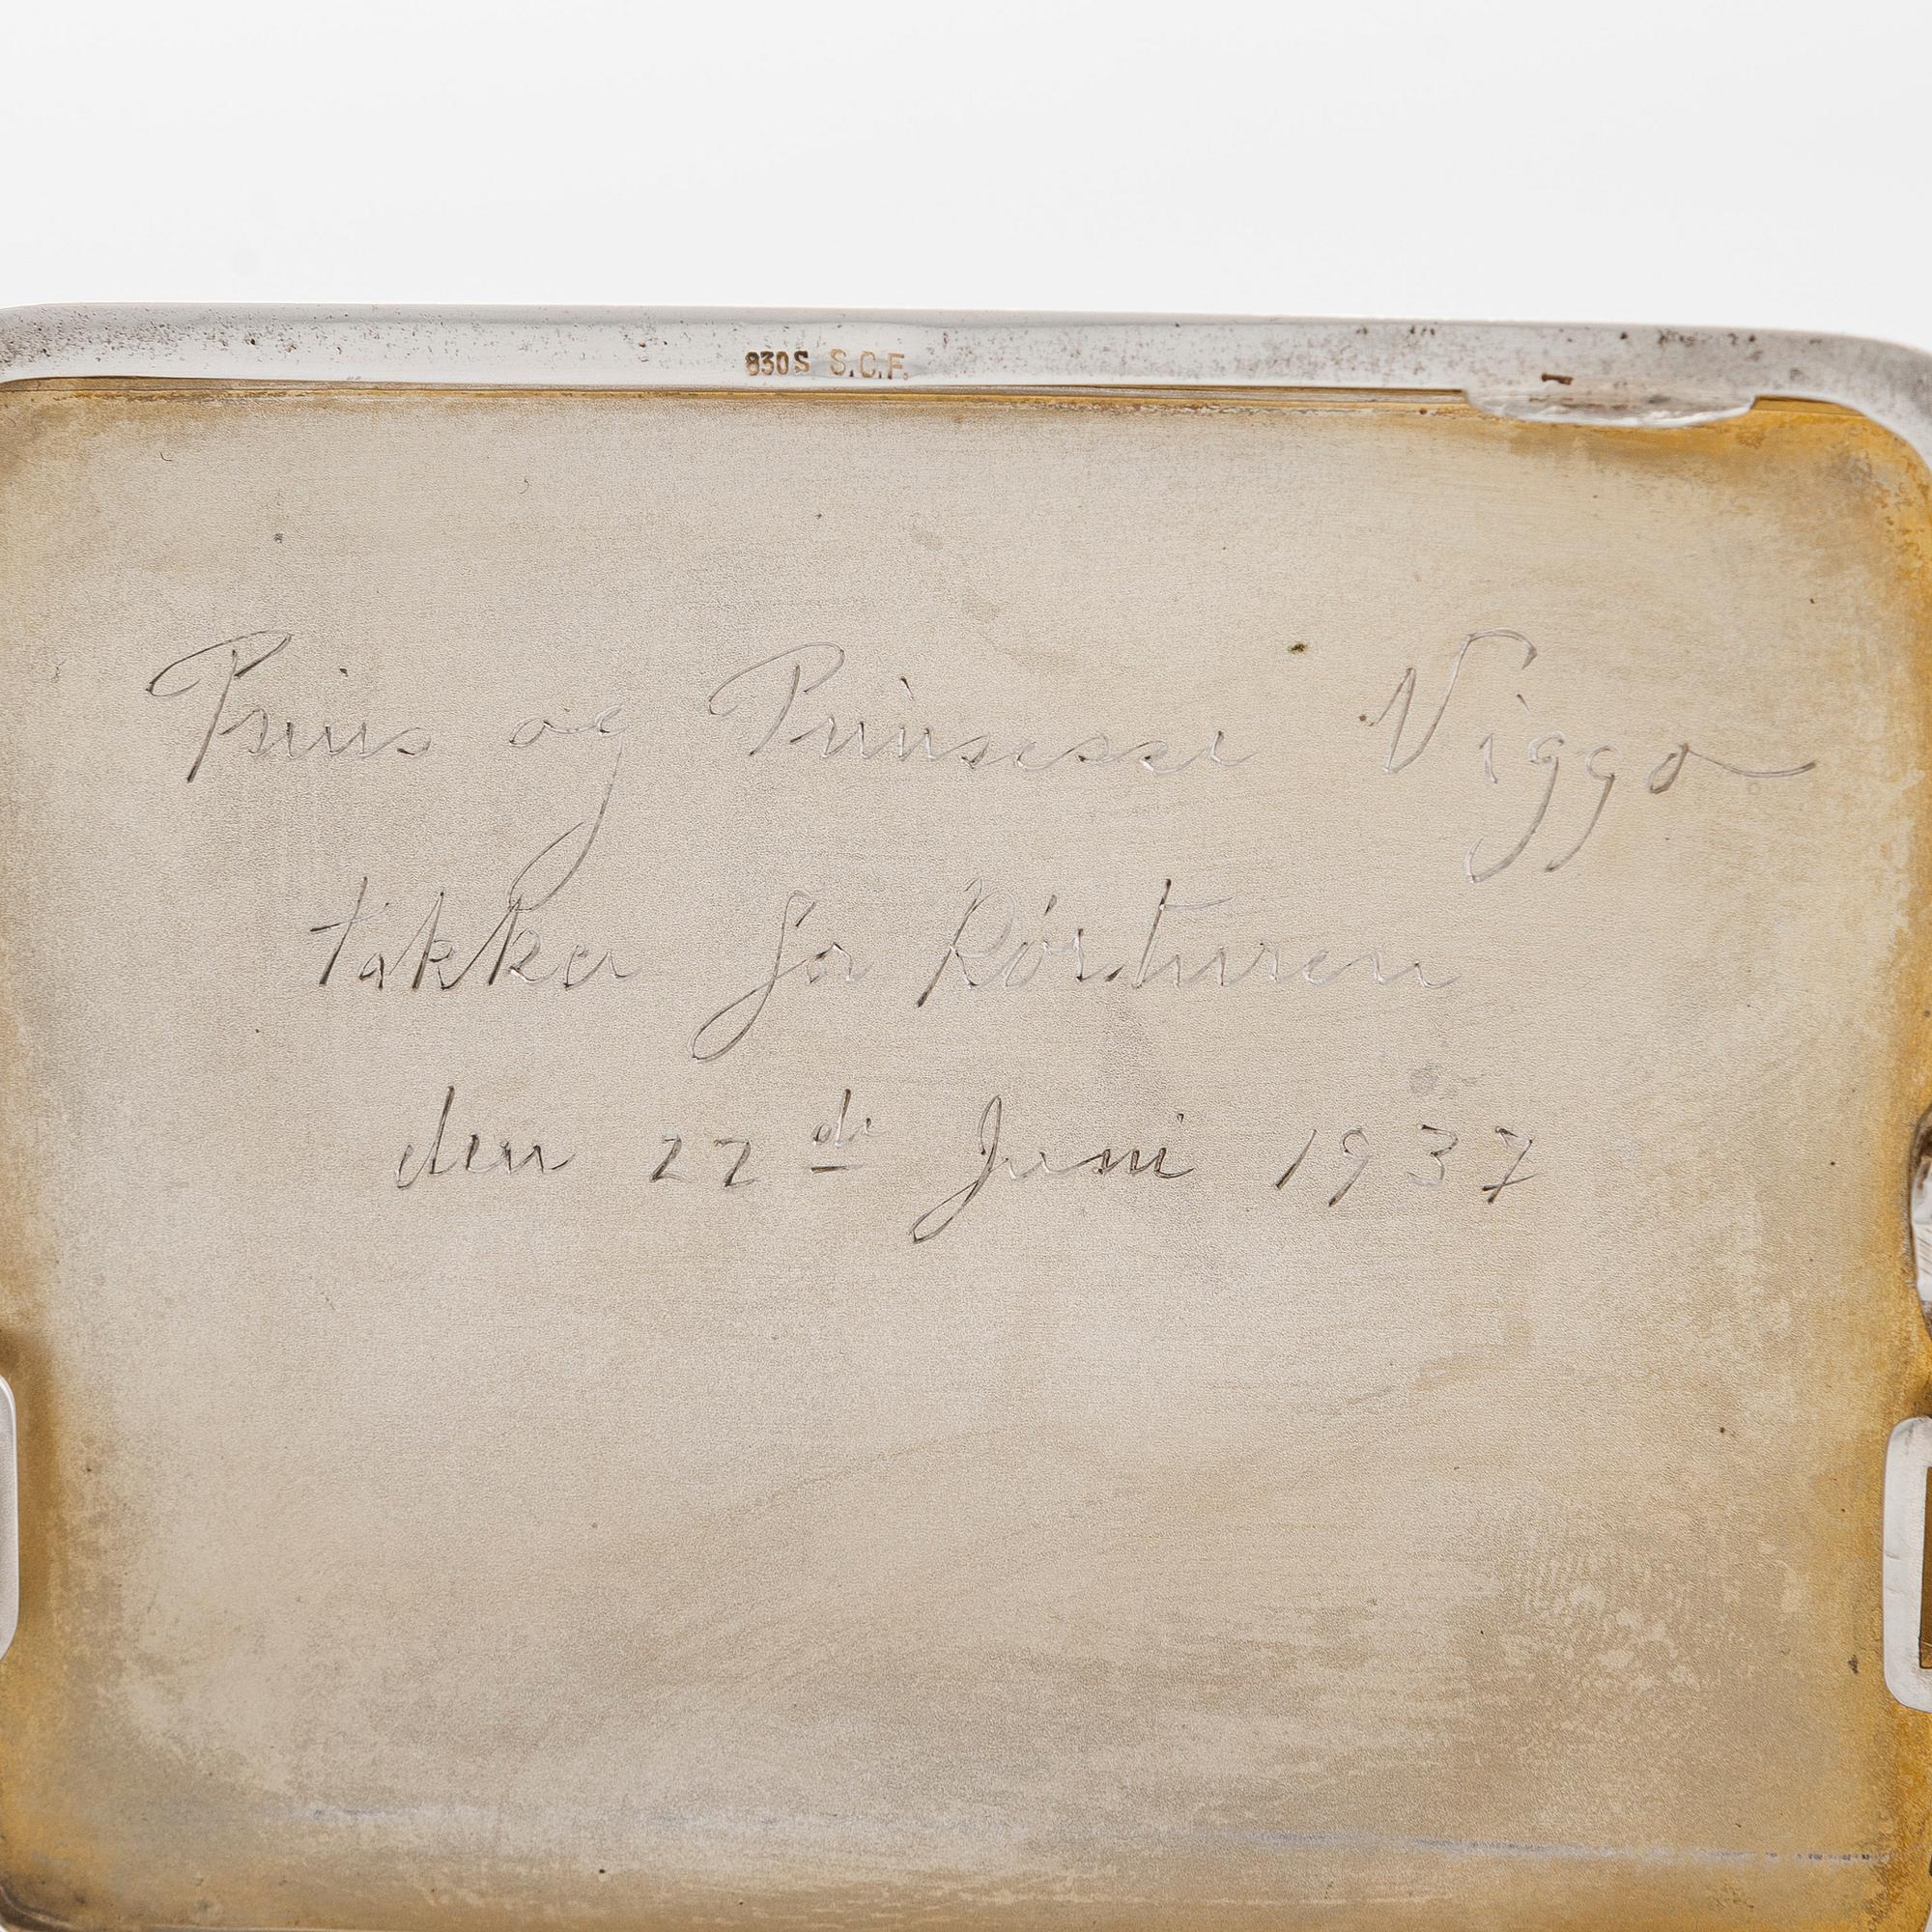 830S S.C.F.
Prins og Prinsesse Viggo
takker for Rósturen
den 22de Juni 1937